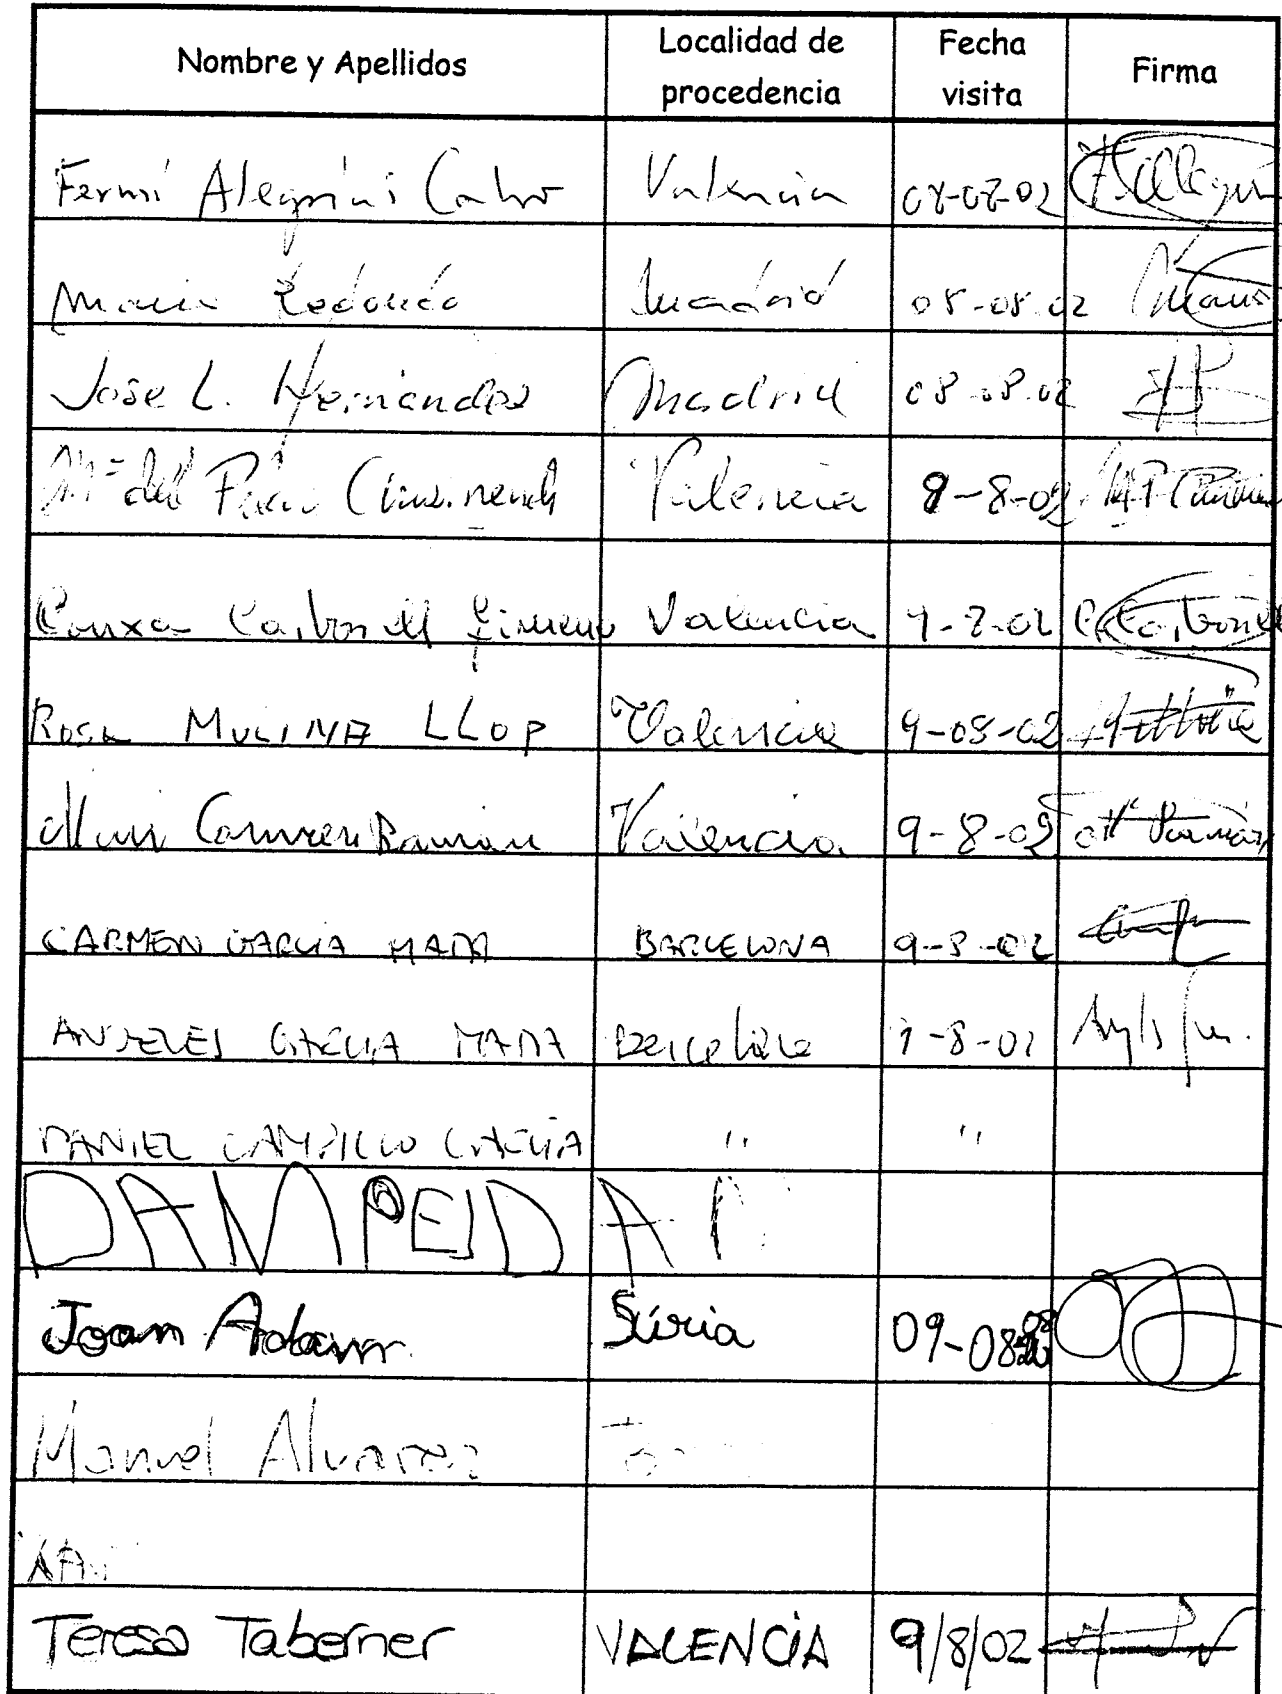 Nombre y Apellidos Localidad de procedencia Fecha visita Firma
Fermí Alegría Calvo Valencia 08-08-02
Maria Redondo Madrid 08-08-02 Maria
Jose L. Hernández Madrid 08-08-02
Mª del Pilar Valencia 9-8-02
Conxa Carbonell Gimeno Valencia 9-8-02 C. Carbonell
Rosa MOLINA LLOP Valencia 9-08-02
Mari Carmen Ramón Valencia 9-8-02 Mª Ramón
CARMEN GARCIA MATA BARCELONA 9-8-02
ANGELES GARCIA MATA Barcelona 9-8-02
DANIEL CAMPILLO GARCIA " "
Joan Adam Súria 09-08
Manuel Alvarez
Teresa Taberner VALENCIA 9/8/02